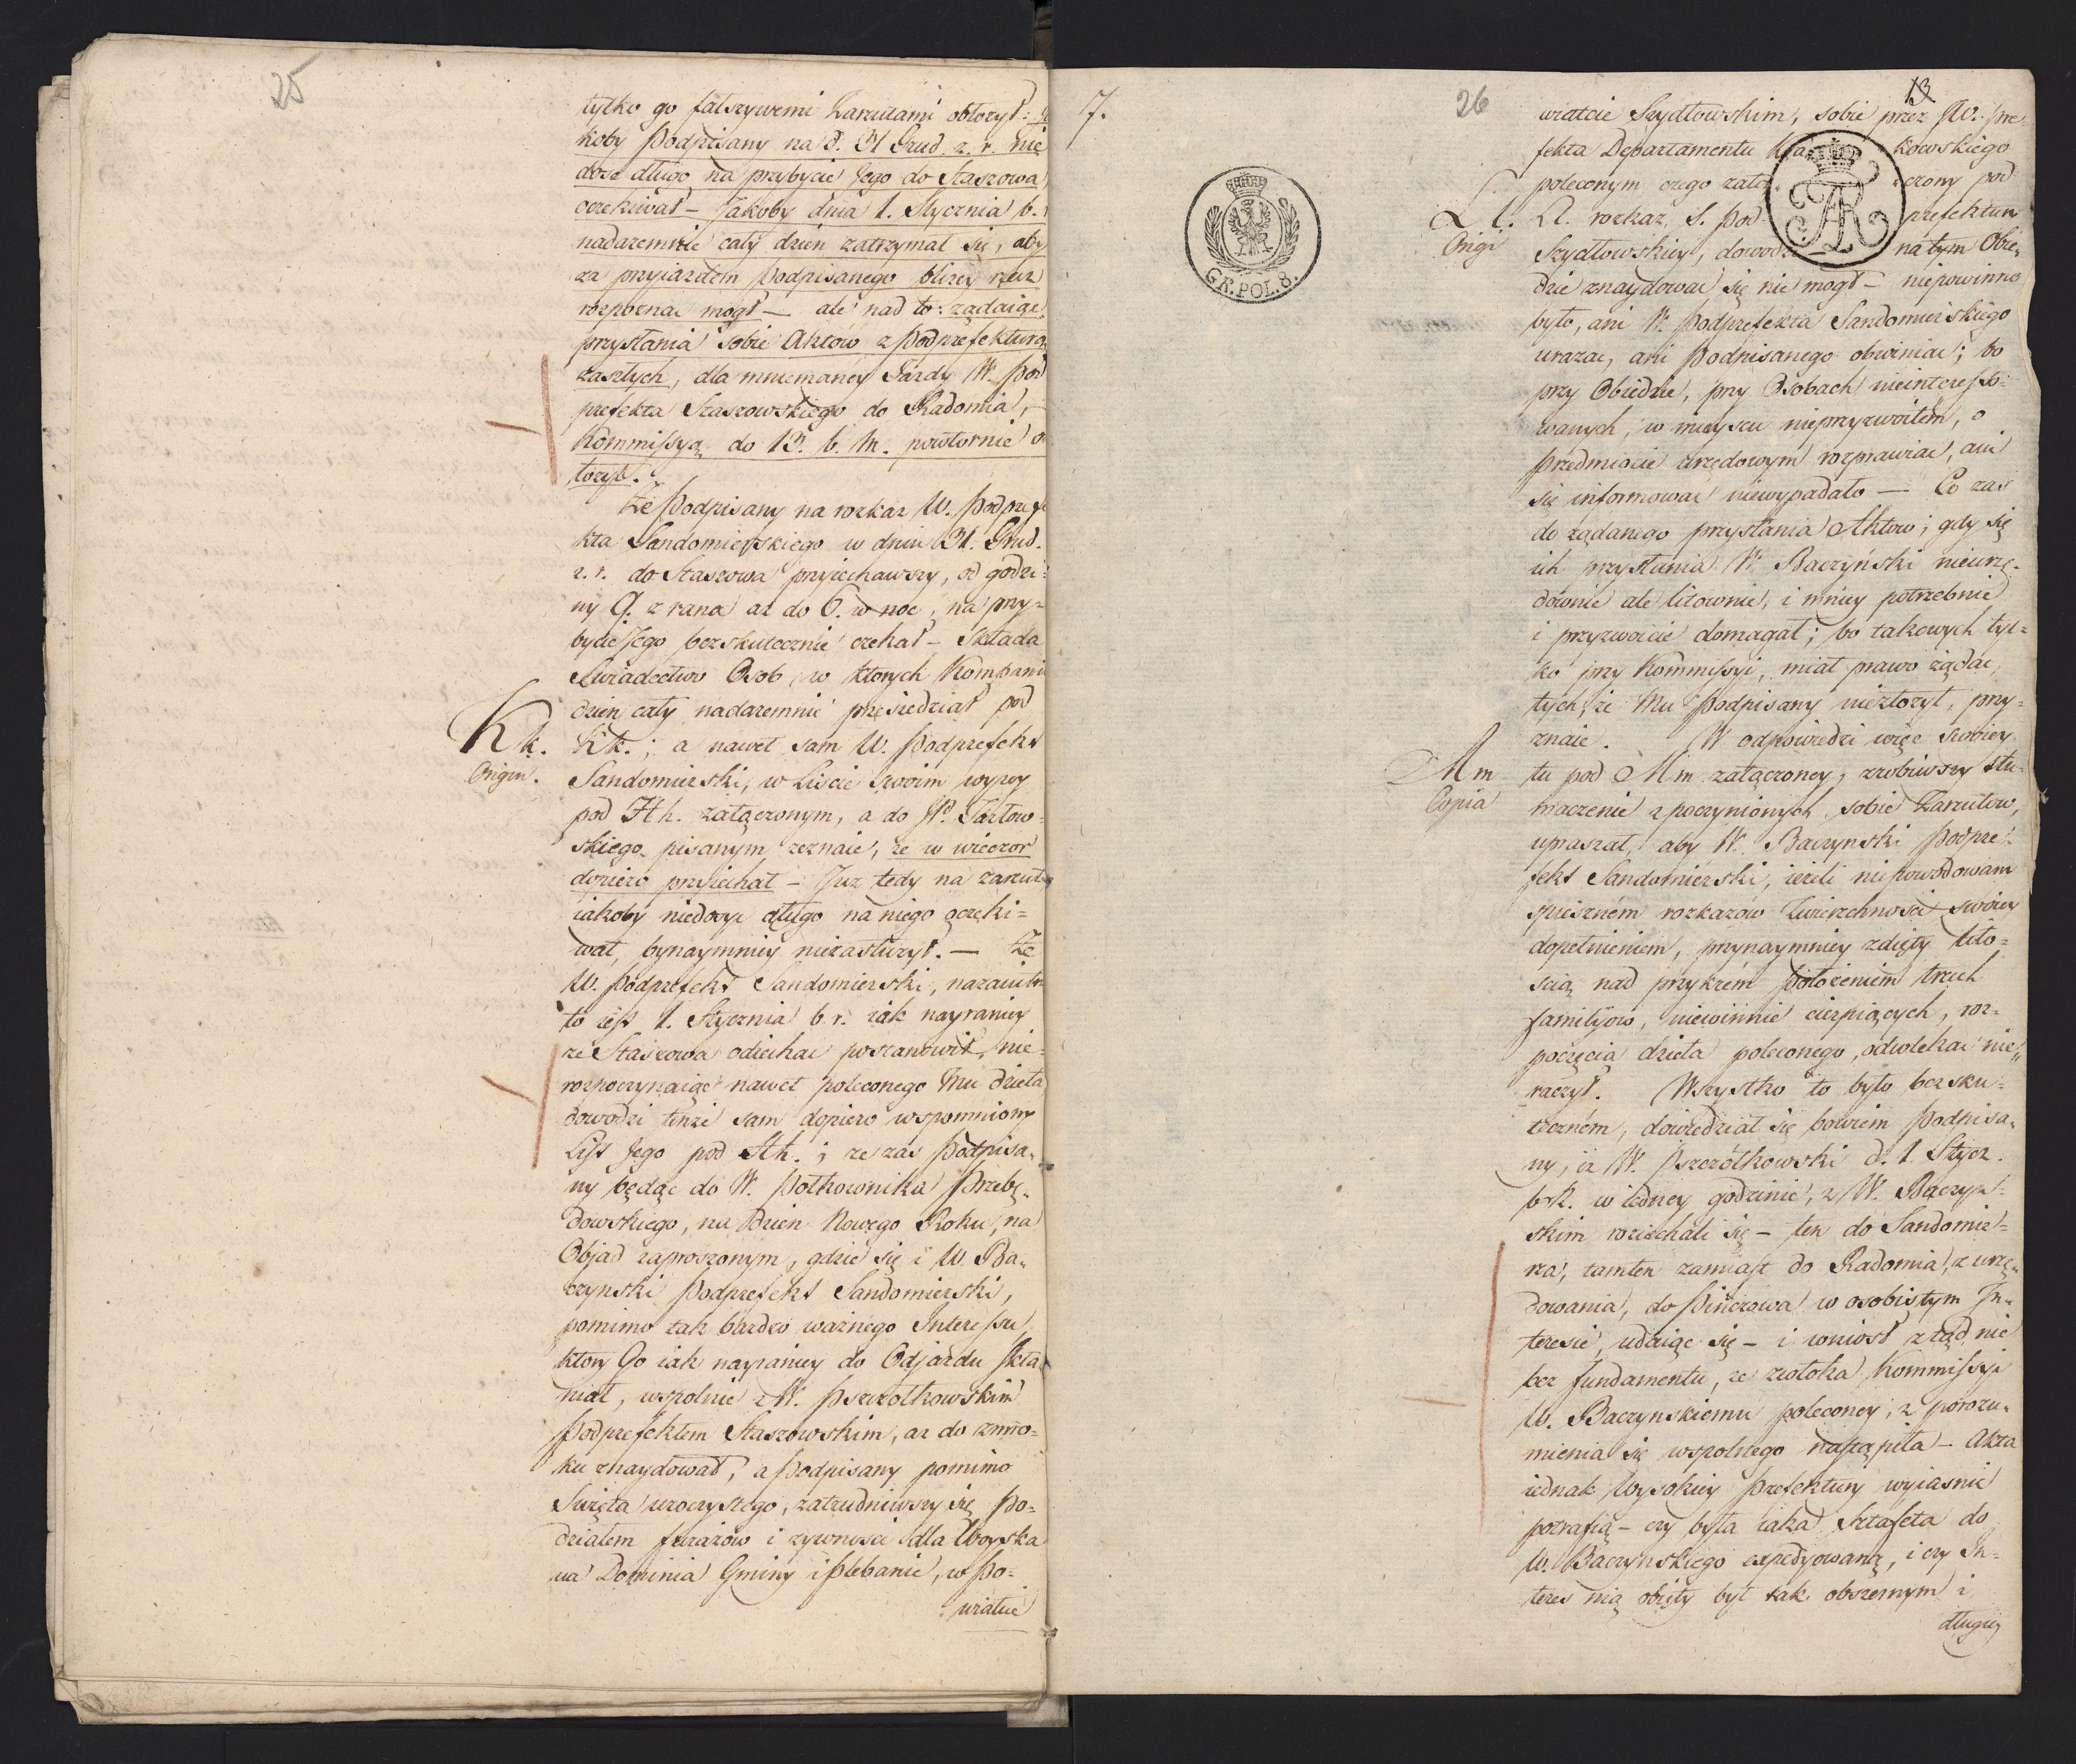 25
tylko go fałszywemi Zarzutami obłożył:
koby Podpisany na d. 31 Grud. z. r. nie
dość długo na przybycie Jego do Staszowa
oczekiwał – Jakoby dnia 1. Stycznia b.
nadaremnie cały dzień zatrzymał się, aby
za przyjazdem Podpisanego bliżey rzecz
rozpoznać mogł – ale nad to: żądaiąc
przysłania sobie Aktów z Podprefekturą
zaszłych, dla mniemaney Jazdy W. Pod
prefekta Staszowskiego do Radomia,
Kommissyą do 13. b. m. powtornie o
łożył.
Że Podpisany na rozkaz W. Podprefe
kta Sandomierskiego w dniu 31. Grud.
z. r. do Staszowa przyiechawszy, od godzi=
ny 9. z rana aż do 6. w noc, na przy=
bycie Jego bezskutecznie czekał – składa
Swiadectwo Osob, w ktorych Kompani
dzień cały nadaremnie przesiedział pod
Kk.
Origin.
Kk.; a nawet sam W. Podprefekt
Sandomierski, w Liście swoim wyżey
pod Hh. załączonym, a do JP. Tarłow=
skiego pisanym zeznaie, że w wieczor
dopiero przyiechał – Już tedy na zarzut
iakoby niedosyć długo na niego oczeki=
wał, bynaymniey niezasłużył. – Że
W. Podprefekt Sandomierski, nazaiutrz
to iest 1. Stycznia b. r. iak nayraniey
ze Staszowa odiechać postanowił, nie=
rozpoczynaiąc nawet poleconego Mu dzieła
dowodzi tenże sam dopiero wspomniony
List Jego pod Hh.; że zaś Podpisa=
ny będąc do W. Połkownika Przebę=
dowskiego, na dzień Nowego Roku, na
Objad zaproszonym, gdzie się i W. Ba=
czynski Podprefekt Sandomierski,
pomimo tak bardzo ważnego Interessu,
ktory Go iak nayraniey do Odjazdu skła
niał, wspolnie z W. Pszczołkowskim
Podprefektem Staszowskim, aż do zmro=
ku znaydował, a Podpisany pomimo
Swięta uroczystego, zatrudniwszy się Po=
działem furażow i żywności dla Woyska
na Dominia Gminy i Plebanie, w Po=
wiatcie
7.
GR. POL. 8.
26
13
wiatcie Szydłowskim, sobie przez JW. Pre=
fekta Departamentu Kra kowskiego
poleconym czego załą czony pod
Ll.
Origi
Ll. rozkaz, S. Pod prefektury
Szydłowskiey, dowodzi – na tym Obie=
dzie znaydować się nie mogł – niepowinno
było, ani W. Podprefekta Sandomierskiego
urażać, ani Podpisanego obwiniać; bo
przy Obiedzie, przy Osobach nieinteresso=
wanych, w mieyscu nieprzyzwoitem, o
przedmiocie urzędowym rozprawiać, ani
się informować niewypadało – Co zaś
do żądanego przysłania Aktow; gdy się
ich przysłania W. Baczyński nieurzę=
downie ale listownie, i mniey potrzebnie
i przyzwoicie domagał; bo takowych tyl=
ko przy Kommissyi, miał prawo żądać,
tych, że Mu Podpisany niezłożył, przy=
znaie. W odpowiedzi więc swoiey
Mm
Copia
tu pod Mm załączoney, zrobiwszy tłu=
maczenie z poczynionych sobie Zarzutow,
upraszał, aby W. Baczynski Podpre=
fekt Sandomierski, ieżeli niepowodowany
spiesznem rozkazów Zwierzchności swoiey
dopełnieniem, przynaymniey zdięty lito=
scią nad przykrém położeniem trzech
familyow, niewinnie cierpiących, roz=
poczęcia dzieła poleconego, odwlekać nie=
raczył. Wszystko to było bezsku=
teczném, dowiedział się bowiem Podpisa=
ny, iż W. Pszczółkowski d. 1 Stycz.
b. R. w iedney godzinie, z W. Baczyń=
skim roziechali się – ten do Sandomie=
rza, tamten zamiast do Radomia, z urzę=
dowania, do Pinczowa w osobistym In=
teresie, udaiąc się – i wniosł ztąd nie
bez fundamentu, że zwłoka Kommissyi
W. Baczynskiemu poleconey, z porozu=
mienia się wspolnego nastąpiła – Akta
iednak Wysokiey Prefektury wyiasnić
potrafią – czy była iaka Sztafeta do
W. Baczynskiego expedyowaną, i czy In=
teres nią obięty był tak obszernym i
długiey